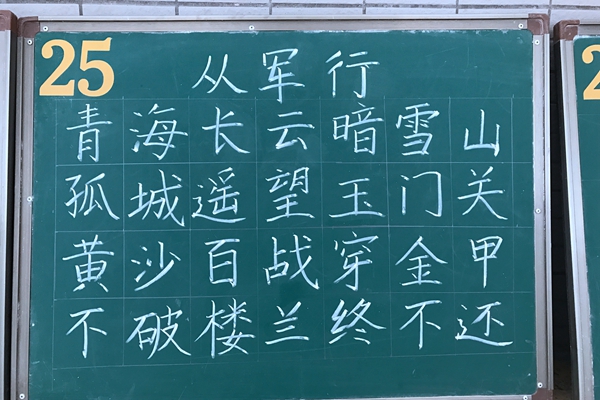 25
从军行
青海长云暗雪山
孤城遥望玉门关
黄沙百战穿金甲
不破楼兰终不还
2